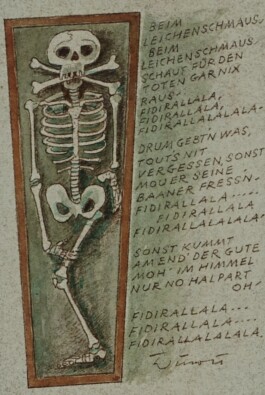 BEIM
LEICHENSCHMAUS,
BEIM
LEICHENSCHMAUS
SCHAUT FÜR DEN
TOTEN GAR NIX
RAUS.
FIDIRALLALA,
FIDIRALLALA,
FIDIRALLALALALA.
DRUM, GEBT'N WAS,
TOUT'S NIT
VERGESSEN, SONST
MOUER SEINE
BAANER FRESS'N.
FIDIRALLALA.....
FIDIRALLALA
FIDIRALLALALALA.
SONST KUMMT
AMEND' DER GUTE
MOH' IM HIMMEL
NUR NO HALPART
OH-
FIDIRALLALA...
FIDIRALLALA....
FIDIRALLALALALA.